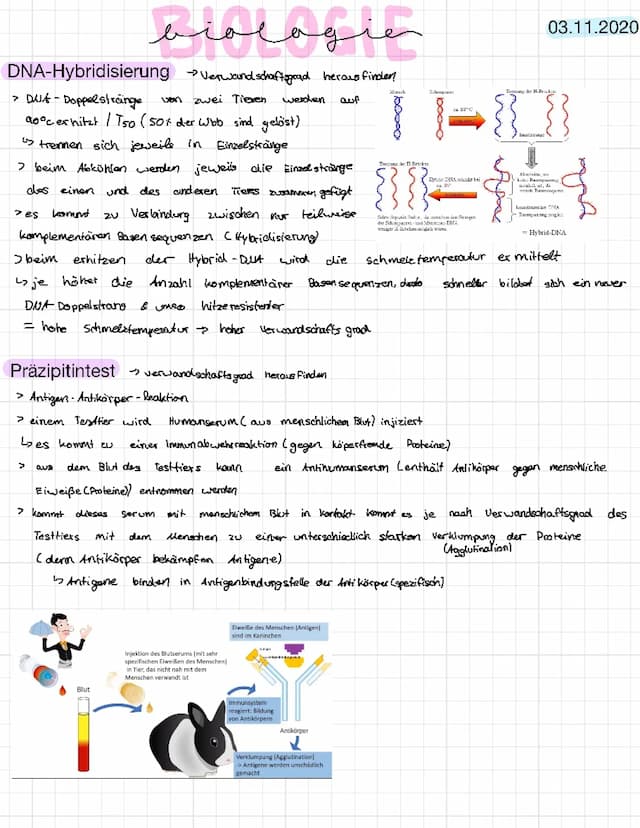 BIOLOGIE
biologie
03.11.2020
DNA-Hybridisierung → Verwandschaftsgrad herausfinden
> DNA-Doppelstränge von zwei Tieren werden auf
90°C erhitzt / T50 (50% der Wbb sind gelöst)
↳ trennen sich jeweils in Einzelstränge
> beim Abkühlen werden jeweils die Einzelstränge
des einen und des anderen Tiers zusammengefügt
> es kommt zu Verbindung zwischen nur teilweise
komplementären Basensequenzen (Hybridisierung)
> beim erhitzen der Hybrid-DNA wird die schmelztemperatur ermittelt
↳ je höher die Anzahl komplementärer Basensequenzen, desto schneller bildet sich ein neuer
DNA-Doppelstrang & umso hitzeresistenter
= hohe Schmelztemperatur → hoher Verwandschaftsgrad
Mensch
Trennung der H-Brücken
Trennung der H-Brücken
= Hybrid-DNA
Präzipitintest → verwandschaftsgrad herausfinden
> Antigen-Antikörper-Reaktion
> einem Testtier wird Humanserum (aus menschlichem Blut) injiziert
↳ es kommt zu einer Immunabwehrreaktion (gegen köperfremde Proteine)
> aus dem Blut des Testtiers kann ein Antihumanserum (enthält Antikörper gegen menschliche
Eiweiße (Proteine)) entnommen werden
> kommt dieses Serum mit menschlichem Blut in Kontakt kommt es je nach Verwandschaftsgrad des
Testtiers mit dem Menschen zu einer unterschiedlich starken Verklumpung der Proteine
(Agglutination)
(denn Antikörper bekämpfen Antigene)
↳ Antigene binden in Antigenbindungsstelle der Antikörper (spezifisch)
Blut
Injektion des Blutserums (mit sehr
spezifischen Eiweißen des Menschen)
in Tier, das nicht nah mit dem
Menschen verwandt ist
Eiweiße des Menschen (Antigen)
sind im Kaninchen
Immunsystem
reagiert: Bildung
von Antikörpern
Antikörper
Verklumpung (Agglutination)
-> Antigene werden unschädlich
gemacht